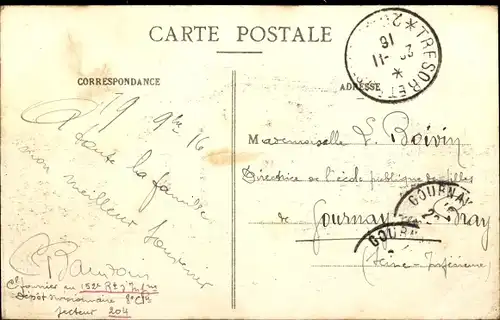 CARTE POSTALE
CORRESPONDANCE
ADRESSE
TRESOR ET
19 9bre 16
A toute la famille
mon meilleur souvenir
Cl fourrier au 152e Rt d'Infrie
Dépôt divisionnaire 8e Cie
Secteur 204
Mademoiselle L. Boivin
Directrice de l'école publique de filles
de Gournay Bray
(Seine-Inférieure)
GOURNAY
GOURNAY